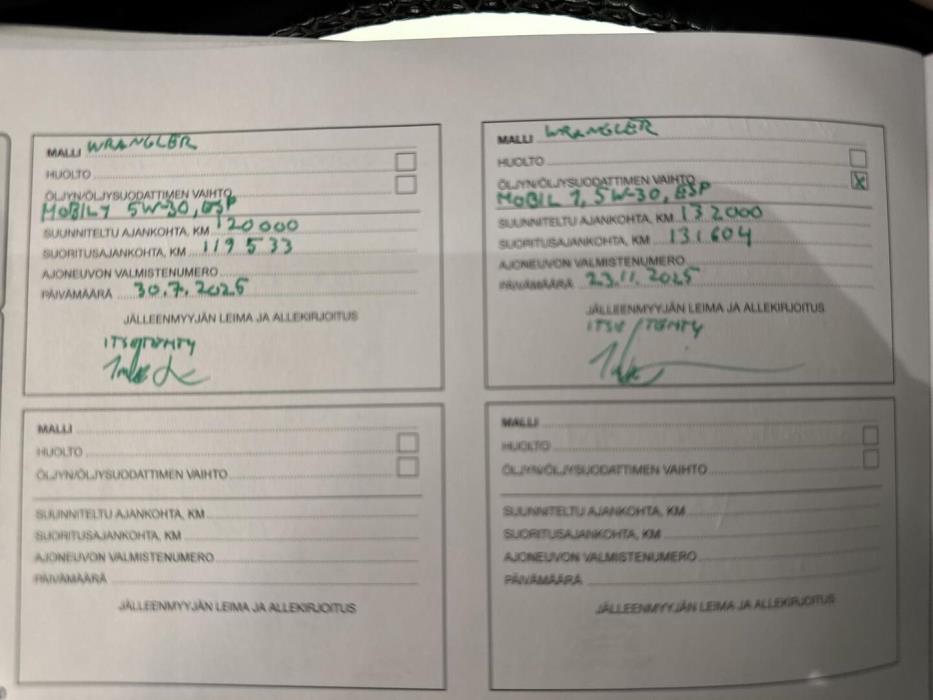 MALLI WRANGLER
HUOLTO
ÖLJYN/ÖLJYSUODATTIMEN VAIHTO
MOBIL 1 5W-30, ESP
SUUNNITELTU AJANKOHTA, KM 120000
SUORITUSAJANKOHTA, KM 119533
AJONEUVON VALMISTENUMERO
PÄIVÄMÄÄRÄ 30.7.2025
JÄLLEENMYYJÄN LEIMA JA ALLEKIRJOITUS
ITSE/TEHTY
MALLI WRANGLER
HUOLTO
ÖLJYN/ÖLJYSUODATTIMEN VAIHTO X
MOBIL 1, 5W-30, ESP
SUUNNITELTU AJANKOHTA, KM 132000
SUORITUSAJANKOHTA, KM 131604
AJONEUVON VALMISTENUMERO
PÄIVÄMÄÄRÄ 23.11.2025
JÄLLEENMYYJÄN LEIMA JA ALLEKIRJOITUS
ITSE/TEHTY
MALLI
HUOLTO
ÖLJYN/ÖLJYSUODATTIMEN VAIHTO
SUUNNITELTU AJANKOHTA, KM
SUORITUSAJANKOHTA, KM
AJONEUVON VALMISTENUMERO
PÄIVÄMÄÄRÄ
JÄLLEENMYYJÄN LEIMA JA ALLEKIRJOITUS
MALLI
HUOLTO
ÖLJYN/ÖLJYSUODATTIMEN VAIHTO
SUUNNITELTU AJANKOHTA, KM
SUORITUSAJANKOHTA, KM
AJONEUVON VALMISTENUMERO
PÄIVÄMÄÄRÄ
JÄLLEENMYYJÄN LEIMA JA ALLEKIRJOITUS